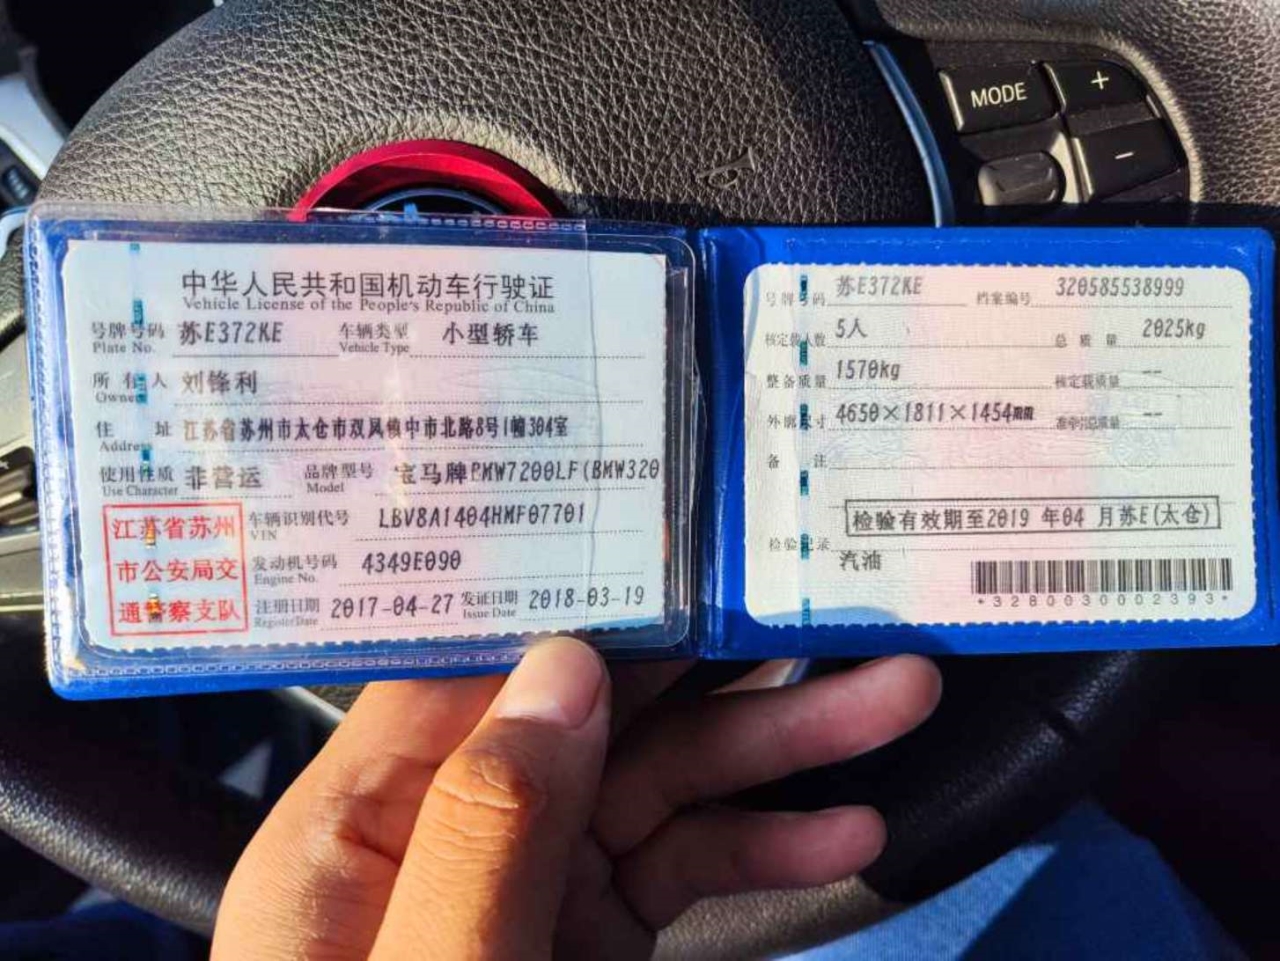 MODE
+
−
中华人民共和国机动车行驶证
Vehicle License of the People's Republic of China
号牌号码 苏E372KE 车辆类型 小型轿车
Plate No. Vehicle Type
所有人 刘锋利
Owner
住址 江苏省苏州市太仓市双凤镇中市北路8号1幢304室
Address
使用性质 非营运 品牌型号 宝马牌BMW7200LF(BMW320
Use Character Model
江苏省苏州
市公安局交
通警察支队
车辆识别代号 LBV8A1404HMF07701
VIN
发动机号码 4349E090
Engine No.
注册日期 2017-04-27 发证日期 2018-03-19
Register Date Issue Date
号牌号码 苏E372KE 档案编号 320585538999
核定载人数 5人 总质量 2025kg
整备质量 1570kg 核定载质量 --
外廓尺寸 4650×1811×1454 准牵引总质量 --
备注
检验有效期至2019 年04 月苏E(太仓)
检验记录
汽油
*3280030002393*